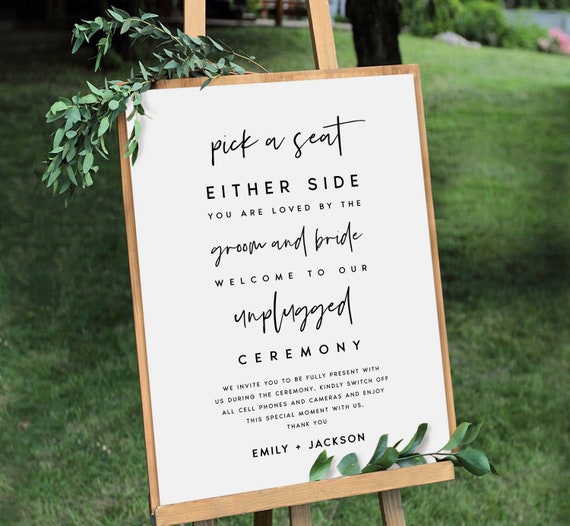 pick a seat
EITHER SIDE
YOU ARE LOVED BY THE
groom and bride
WELCOME TO OUR
unplugged
CEREMONY
WE INVITE YOU TO BE FULLY PRESENT WITH
US DURING THE CEREMONY. KINDLY SWITCH OFF
ALL CELL PHONES AND CAMERAS AND ENJOY
THIS SPECIAL MOMENT WITH US.
THANK YOU
EMILY + JACKSON